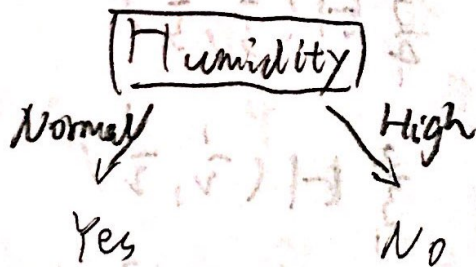 Humidity
Normal High
Yes No